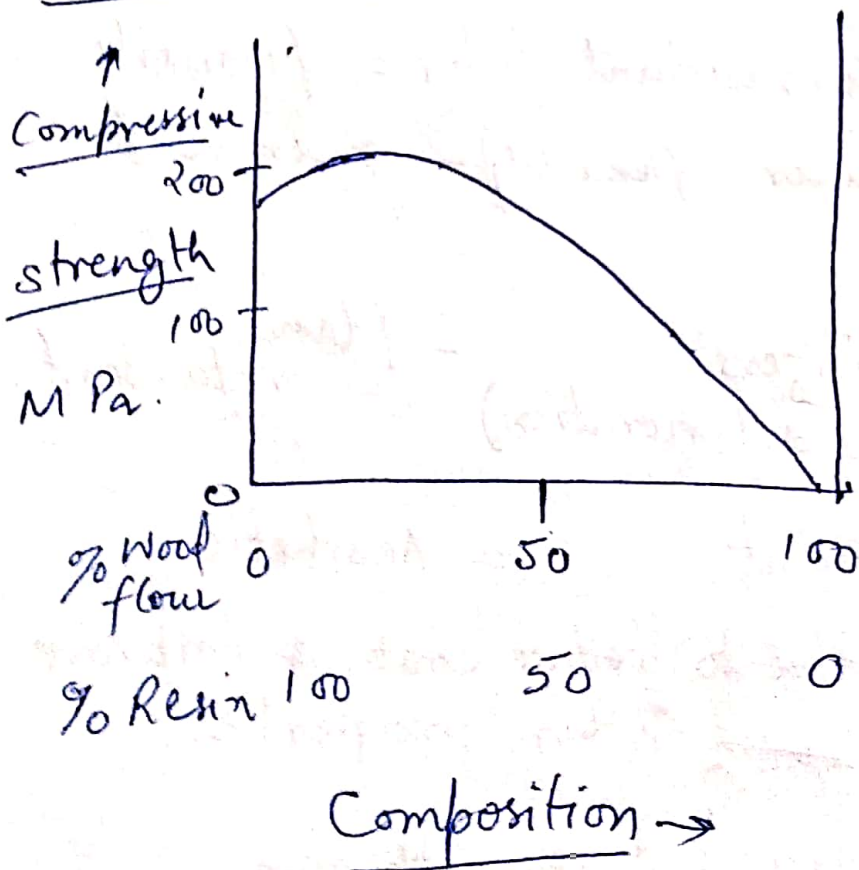 Compressive
200
strength
100
M Pa.
0
% Wood flour 0 50 100
% Resin 100 50 0
Composition →